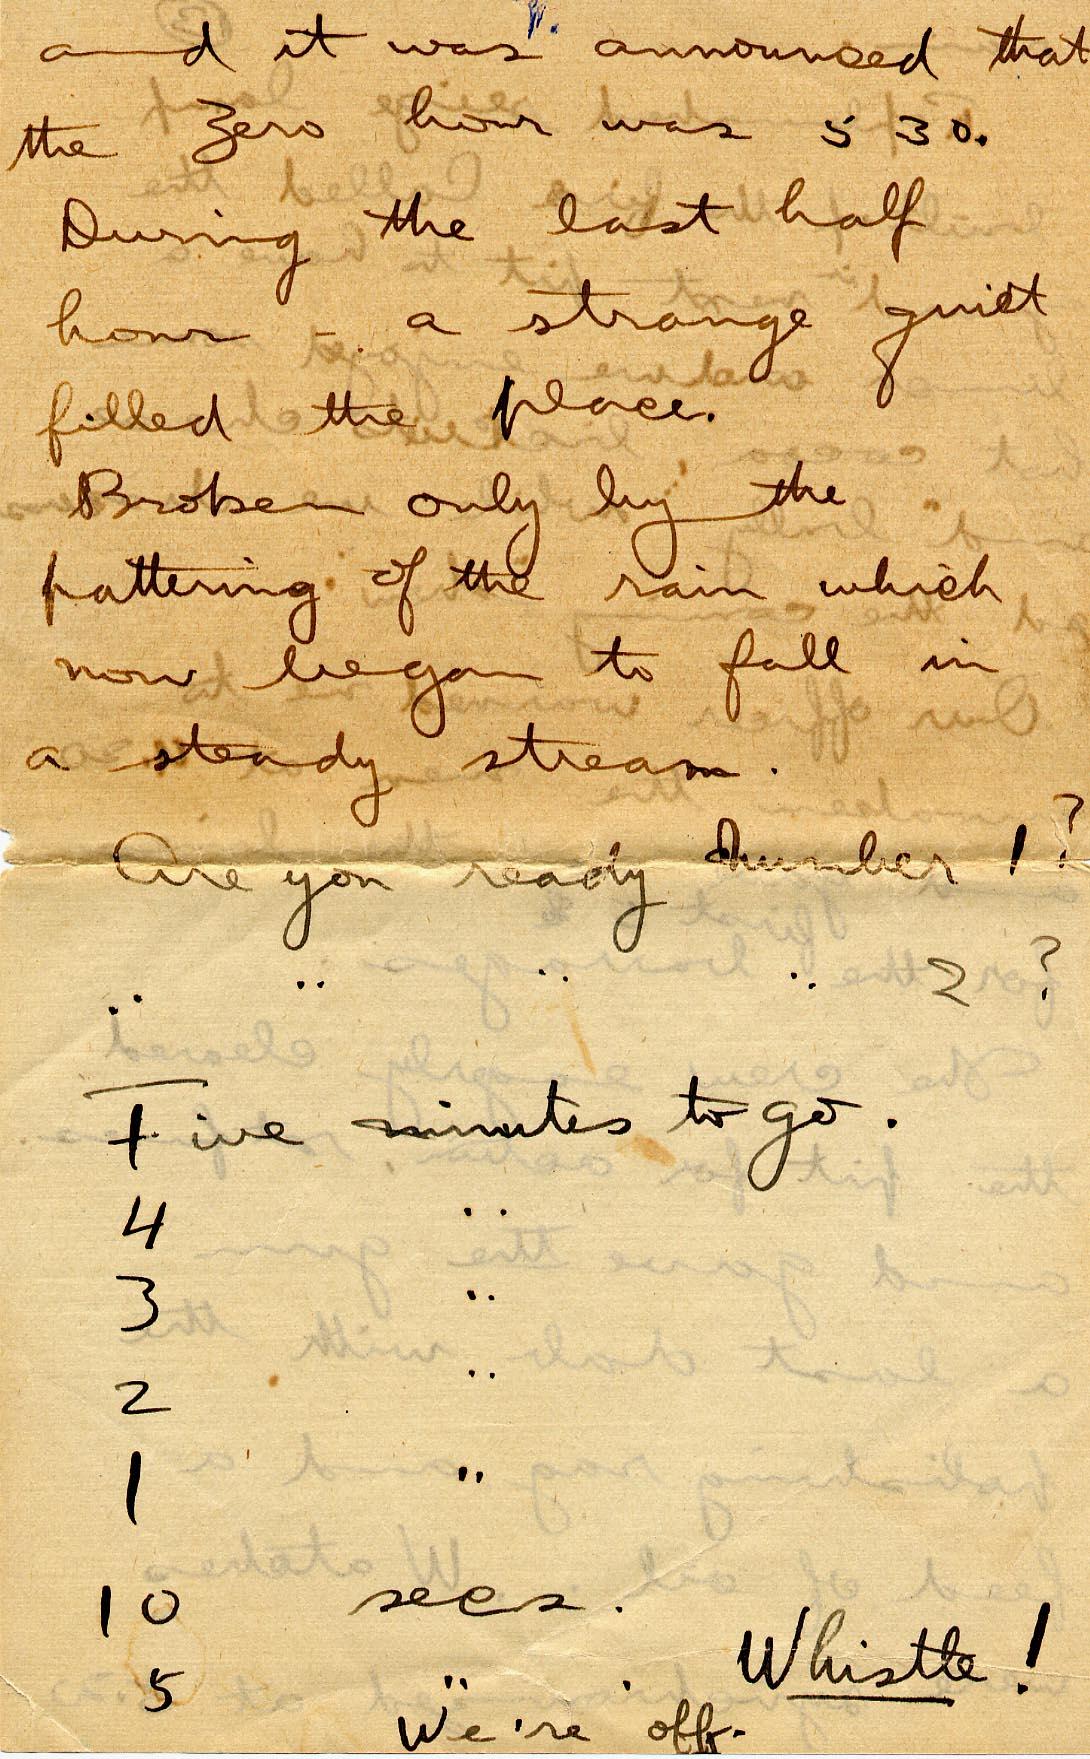 and it was announced that
the Zero hour was 5 30.
During the last half
hour a strange quiet
filled the place.
Broken only by the
pattering of the rain which
now began to fall in
a steady stream.
Are you ready Number 1?
" " " " 2?
Five minutes to go.
4 "
3 "
2 "
1 "
10 secs.
5 " . Whistle!
We're off.